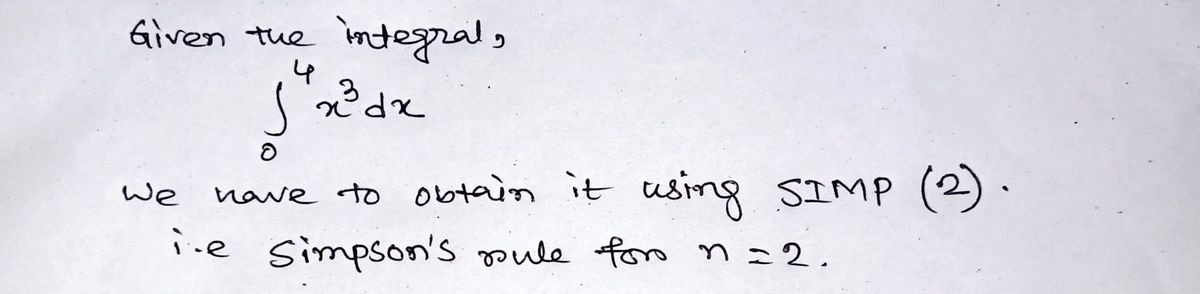 Given the integral,
∫₀⁴ x³ dx
We have to obtain it using SIMP (2).
i.e Simpson's rule for n = 2.